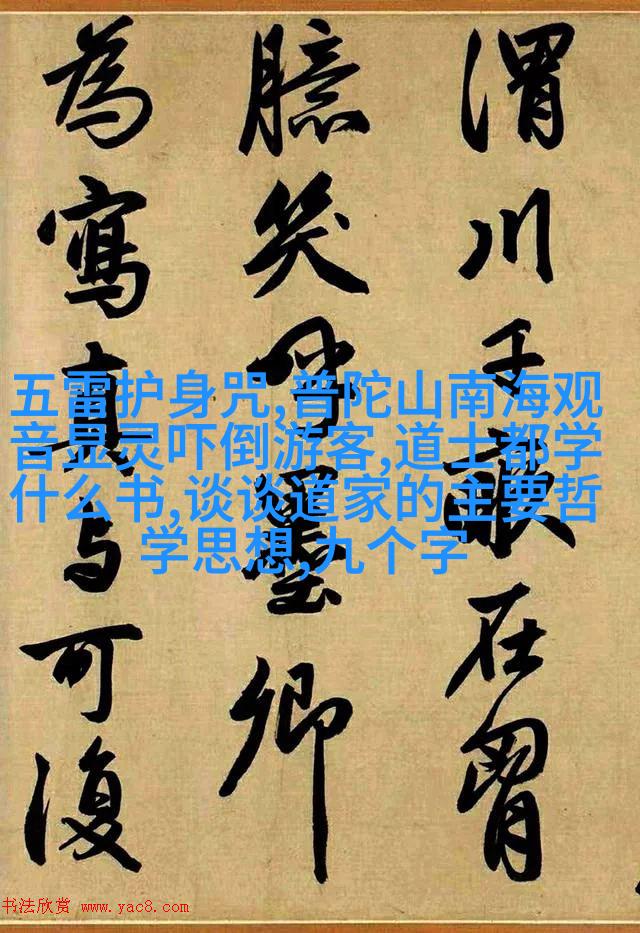 渭川千畝在胷
臆笑呼墨卿
為寫真与可復
五雷护身咒,普陀山南海观
音显灵吓倒游客,道士都学
什么书,谈谈道家的主要哲
学思想,九个字
书法欣赏 www.yac8.com